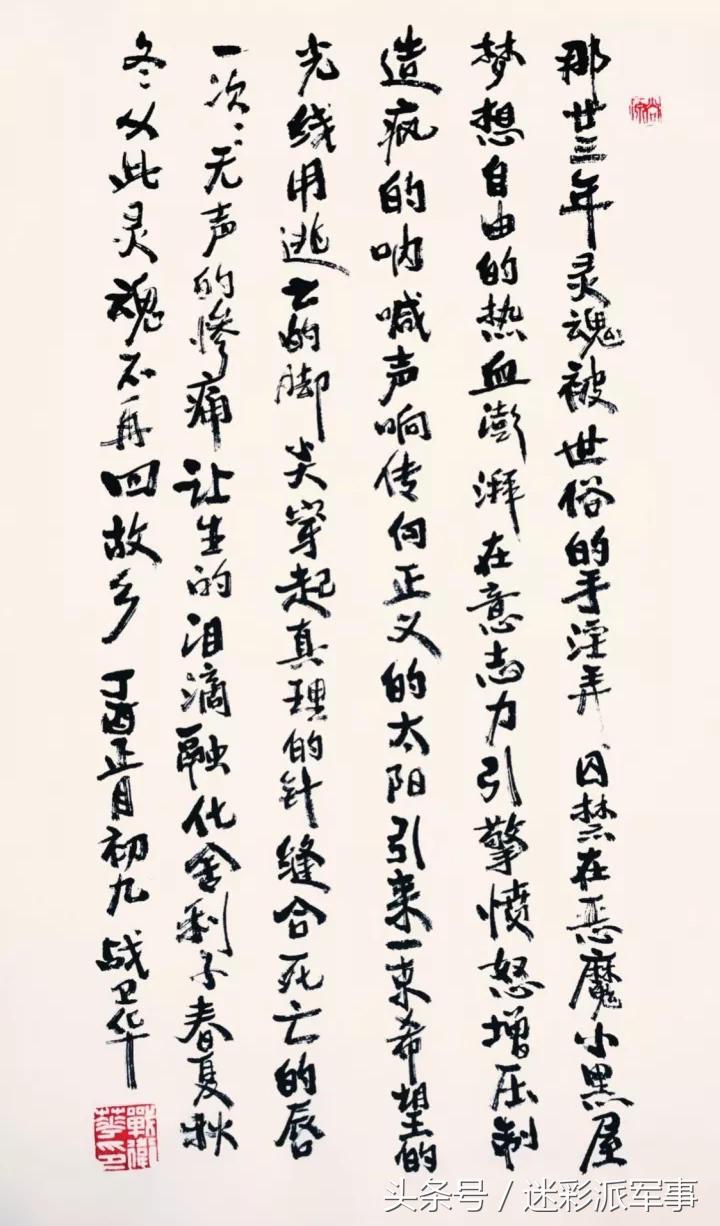 那廿三年灵魂被世俗的手淫弄囚禁在恶魔小黑屋
梦想自由的热血澎湃在意志力引擎愤怒增压制
造疯的呐喊声响传向正义的太阳引来一束希望的
光线用逃亡的脚尖穿起真理的针缝合死亡的唇
一次次无声的惨痛让生的泪滴融化舍利子春夏秋
冬从此灵魂不再回故乡 丁酉正月初九 战卫华
戰衛華印
头条号 / 迷彩派军事